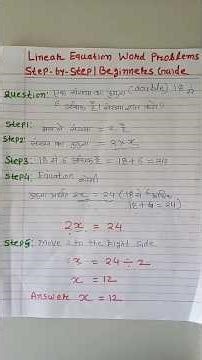 Linear Equation Word Problems
Step-by-Step | Beginners Guide
Question: एक संख्या का दुगुना (double) 18 से
6 अधिक है। संख्या ज्ञात करो?
Step1: माना संख्या x है
Step2: संख्या का दुगुना = 2xx
Step3: 18 से 6 अधिक है = 18+6 = 24
Step4: Equation बनेगी
दुगुना अर्थात 2x = 24 (18 से 6 अधिक
18+6 = 24)
2x = 24
Step5: Move 2 to the Right side
x = 24 ÷ 2
x = 12
Answer x = 12